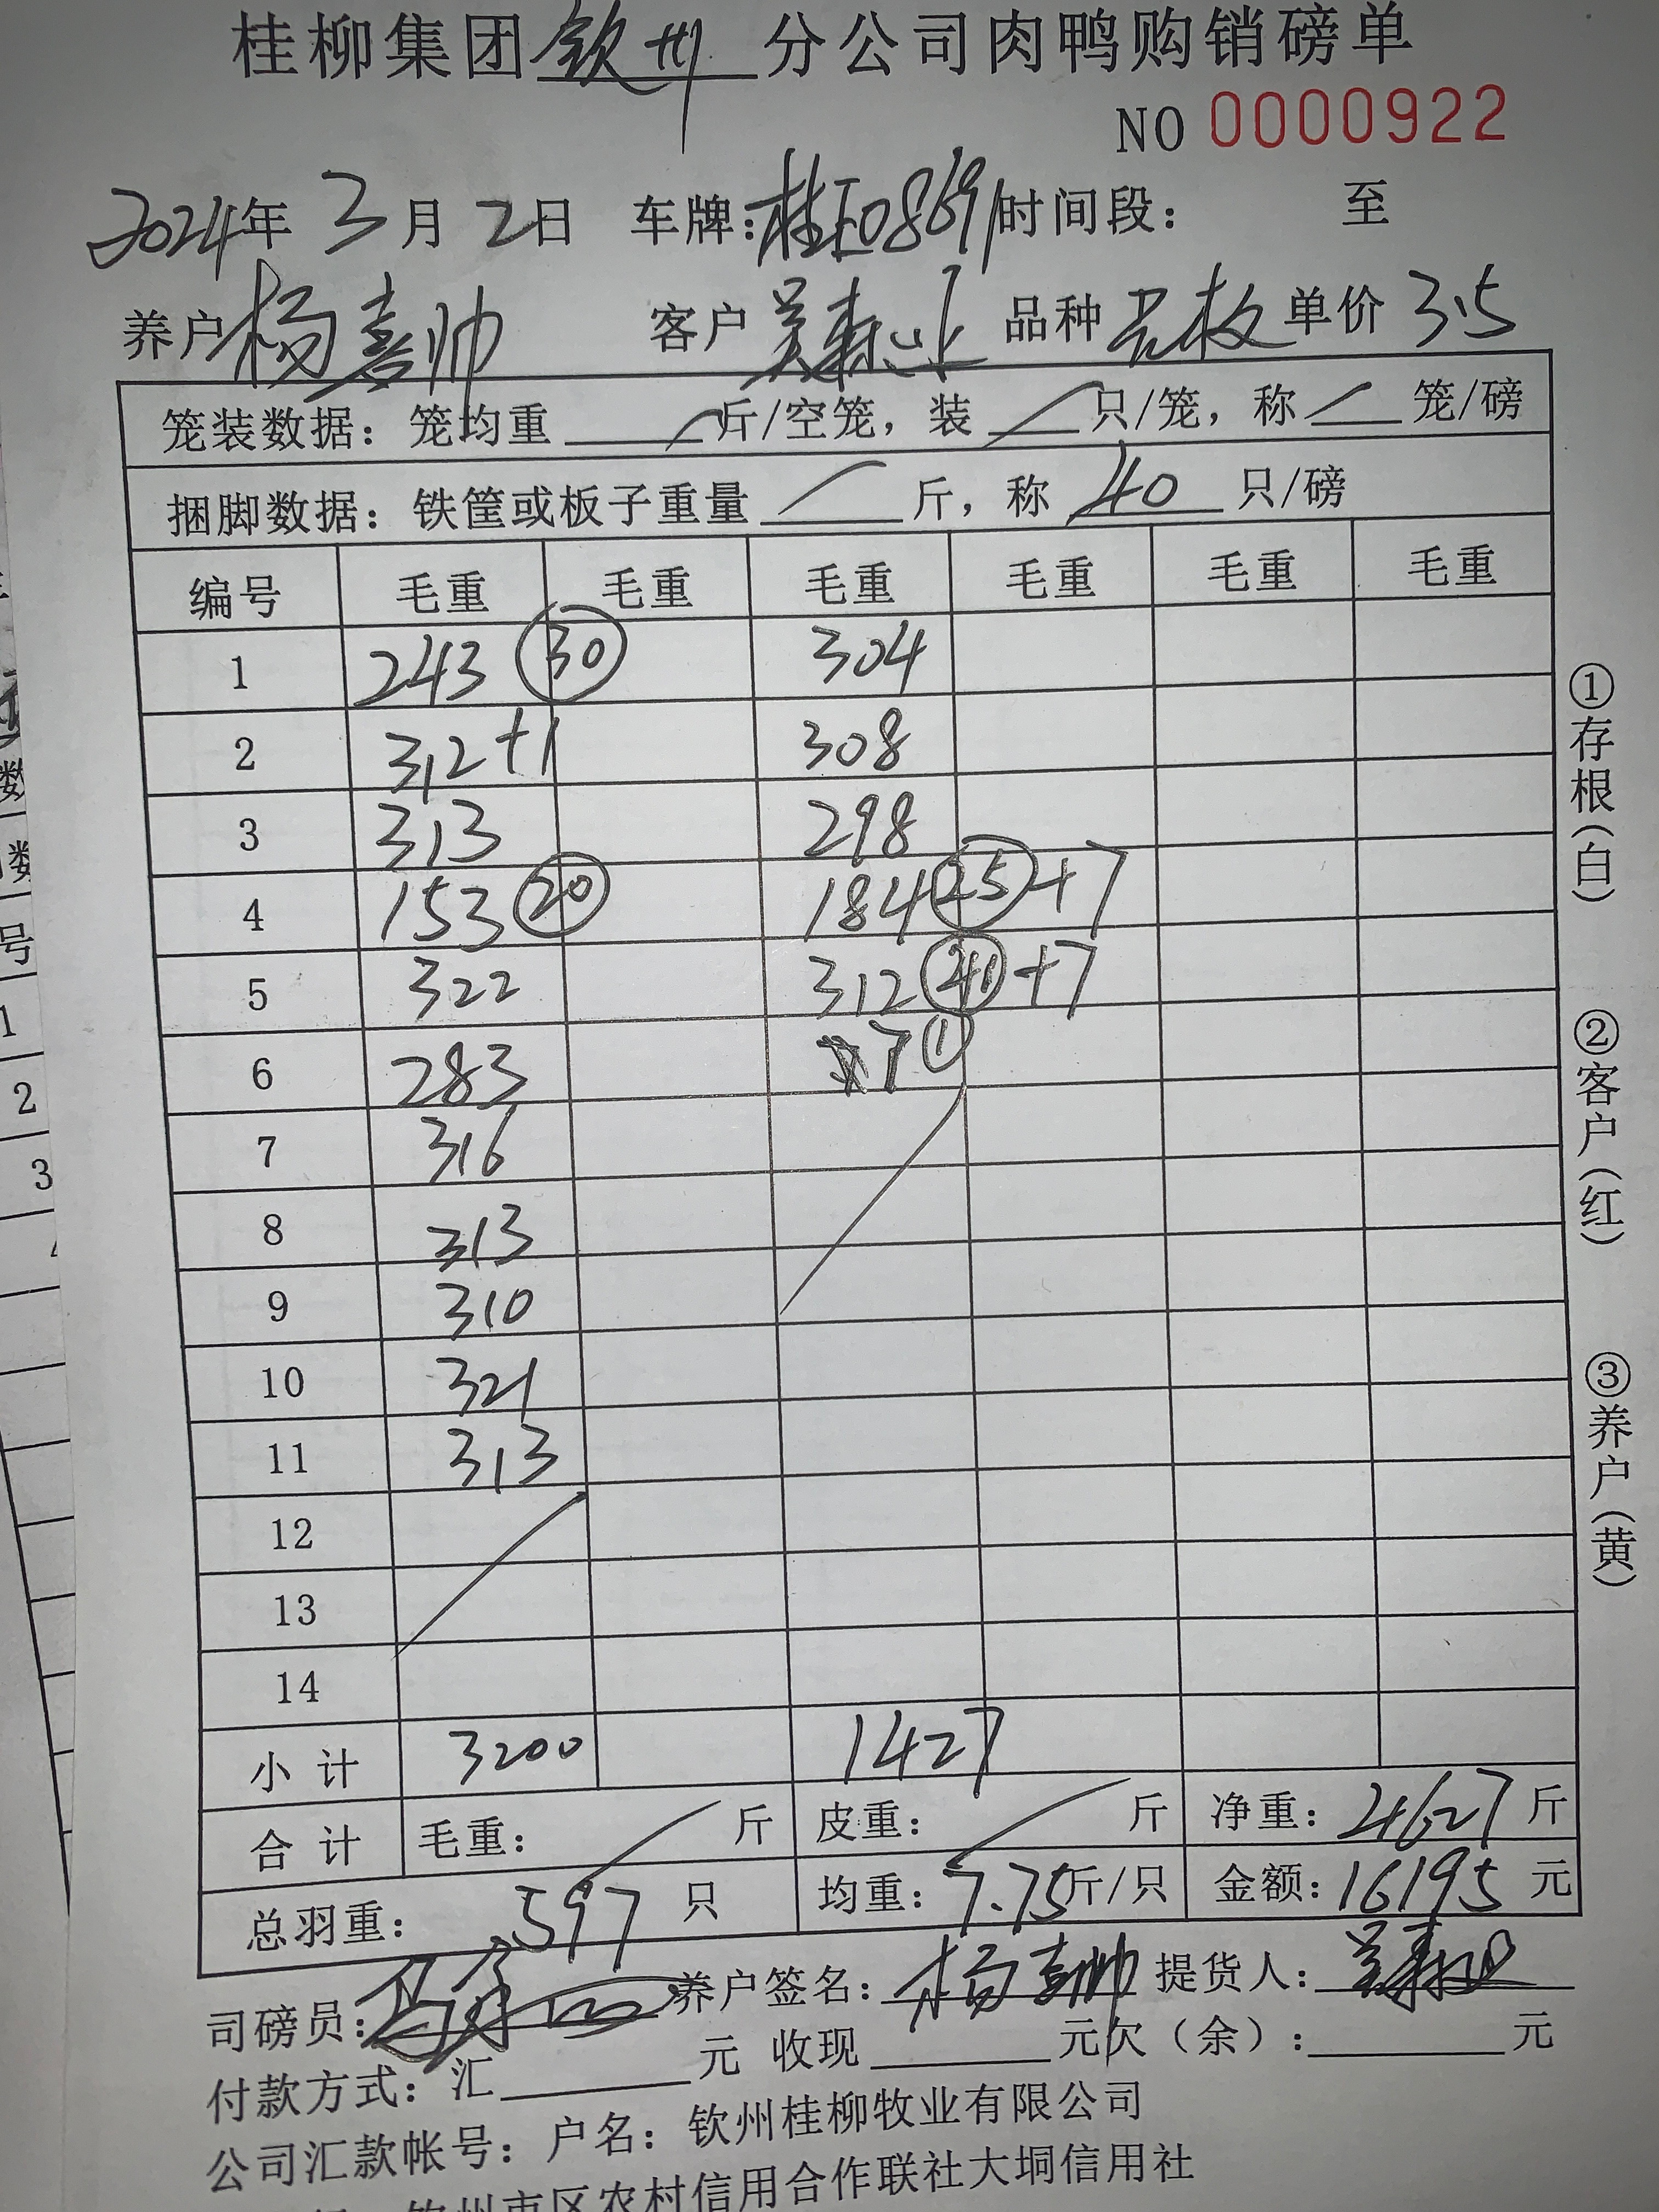 桂柳集团钦州分公司肉鸭购销磅单
NO 0000922
2024年3月2日 车牌: 时间段： 至
养户 杨喜帅 客户 吴 品种 单价 3.5
笼装数据：笼均重 斤/空笼，装 只/笼，称 笼/磅
捆脚数据：铁筐或板子重量 斤，称 40 只/磅
编号 毛重 毛重 毛重 毛重 毛重 毛重
1 243 30 304
2 312+1 308
3 313 298
4 153 20 184 25+7
5 322 312 40+7
6 283 7 1
7 316
8 313
9 310
10 321
11 313
12
13
14
小计 3200 1427
合计 毛重： 斤 皮重： 斤 净重：4627斤
总羽重：597只 均重：7.75斤/只 金额：16195元
司磅员: 养户签名: 杨喜帅 提货人:
付款方式：汇 元 收现 元欠（余）: 元
公司汇款帐号：户名：钦州桂柳牧业有限公司
钦州市区农村信用合作联社大垌信用社
①存根（白）
②客户（红）
③养户（黄）